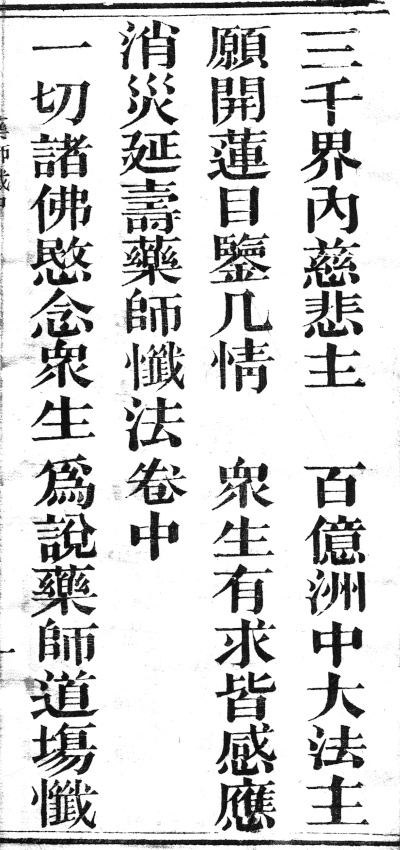 三千界內慈悲主　百億洲中大法主
願開蓮目鑒几情　衆生有求皆感應
消災延壽藥師懺法卷中
一切諸佛愍念衆生為說藥師道塲懺
藥師懺中